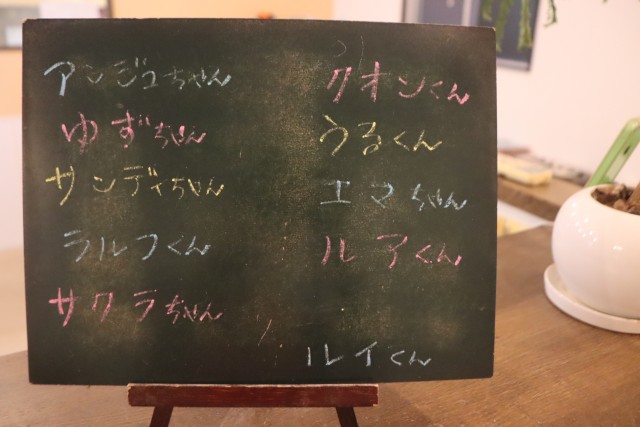 アンジュちゃん
ゆずちゃん
サンディちゃん
ラルフくん
サクラちゃん
クオンくん
うるくん
エマちゃん
ルアくん
ルイくん